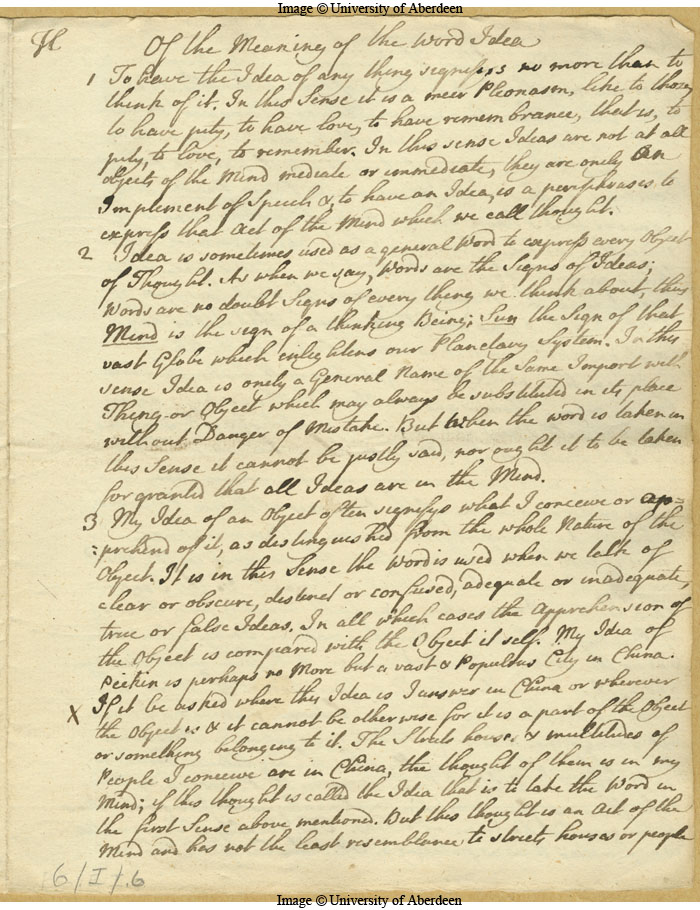 Image © University of Aberdeen
Of the Meaning of the Word Idea
1 To have the Idea of any thing signifys no more than to
think of it. In this Sense it is a meer Pleonasm, like to those,
to have pity, to have love, to have remembrance, that is, to
pity, to love, to remember. In this sense Ideas are not at all
objects of the Mind mediate or immediate, they are onely an
Implement of Speech &, to have an Idea, is a periphrasis to
express that Act of the Mind which we call thought.
2 Idea is sometimes used as a general Word to express every Object
of Thought. As when we say, Words are the Signs of Ideas;
Words are no doubt Signs of every thing we think about, thus
Mind is the sign of a thinking Being; Sun the Sign of that
vast Globe which enlightens our Planetary System. In this
sense Idea is onely a General Name of the Same Import with
Thing or Object which may always be substituted in its place
without Danger of Mistake. But when the word is taken in
this Sense it cannot be justly said, nor ought it to be taken
for granted that all Ideas are in the Mind.
3 My Idea of an Object often signifys what I conceive or ap=
:prehend of it, as distinguished from the whole Nature of the
Object. It is in this Sense the Word is used when we talk of
clear or obscure, distinct or confused, adequate or inadequate,
true or false Ideas. In all which cases the Apprehension of
the Object is compared with the Object it self. My Idea of
Peikin is perhaps no More but a vast & Populous City in China.
X If it be asked where this Idea is I answer in China or wherever
the Object is & it cannot be otherwise for it is a part of the Object
or something belonging to it. The Streets houses & multitudes of
People I conceive are in China, the thought of them is in my
Mind; if this thought is called the Idea that is to take the Word in
the first Sense above mentioned. But this thought is an Act of the
Mind and has not the least resemblance to streets houses or people
6/I/.6
Image © University of Aberdeen